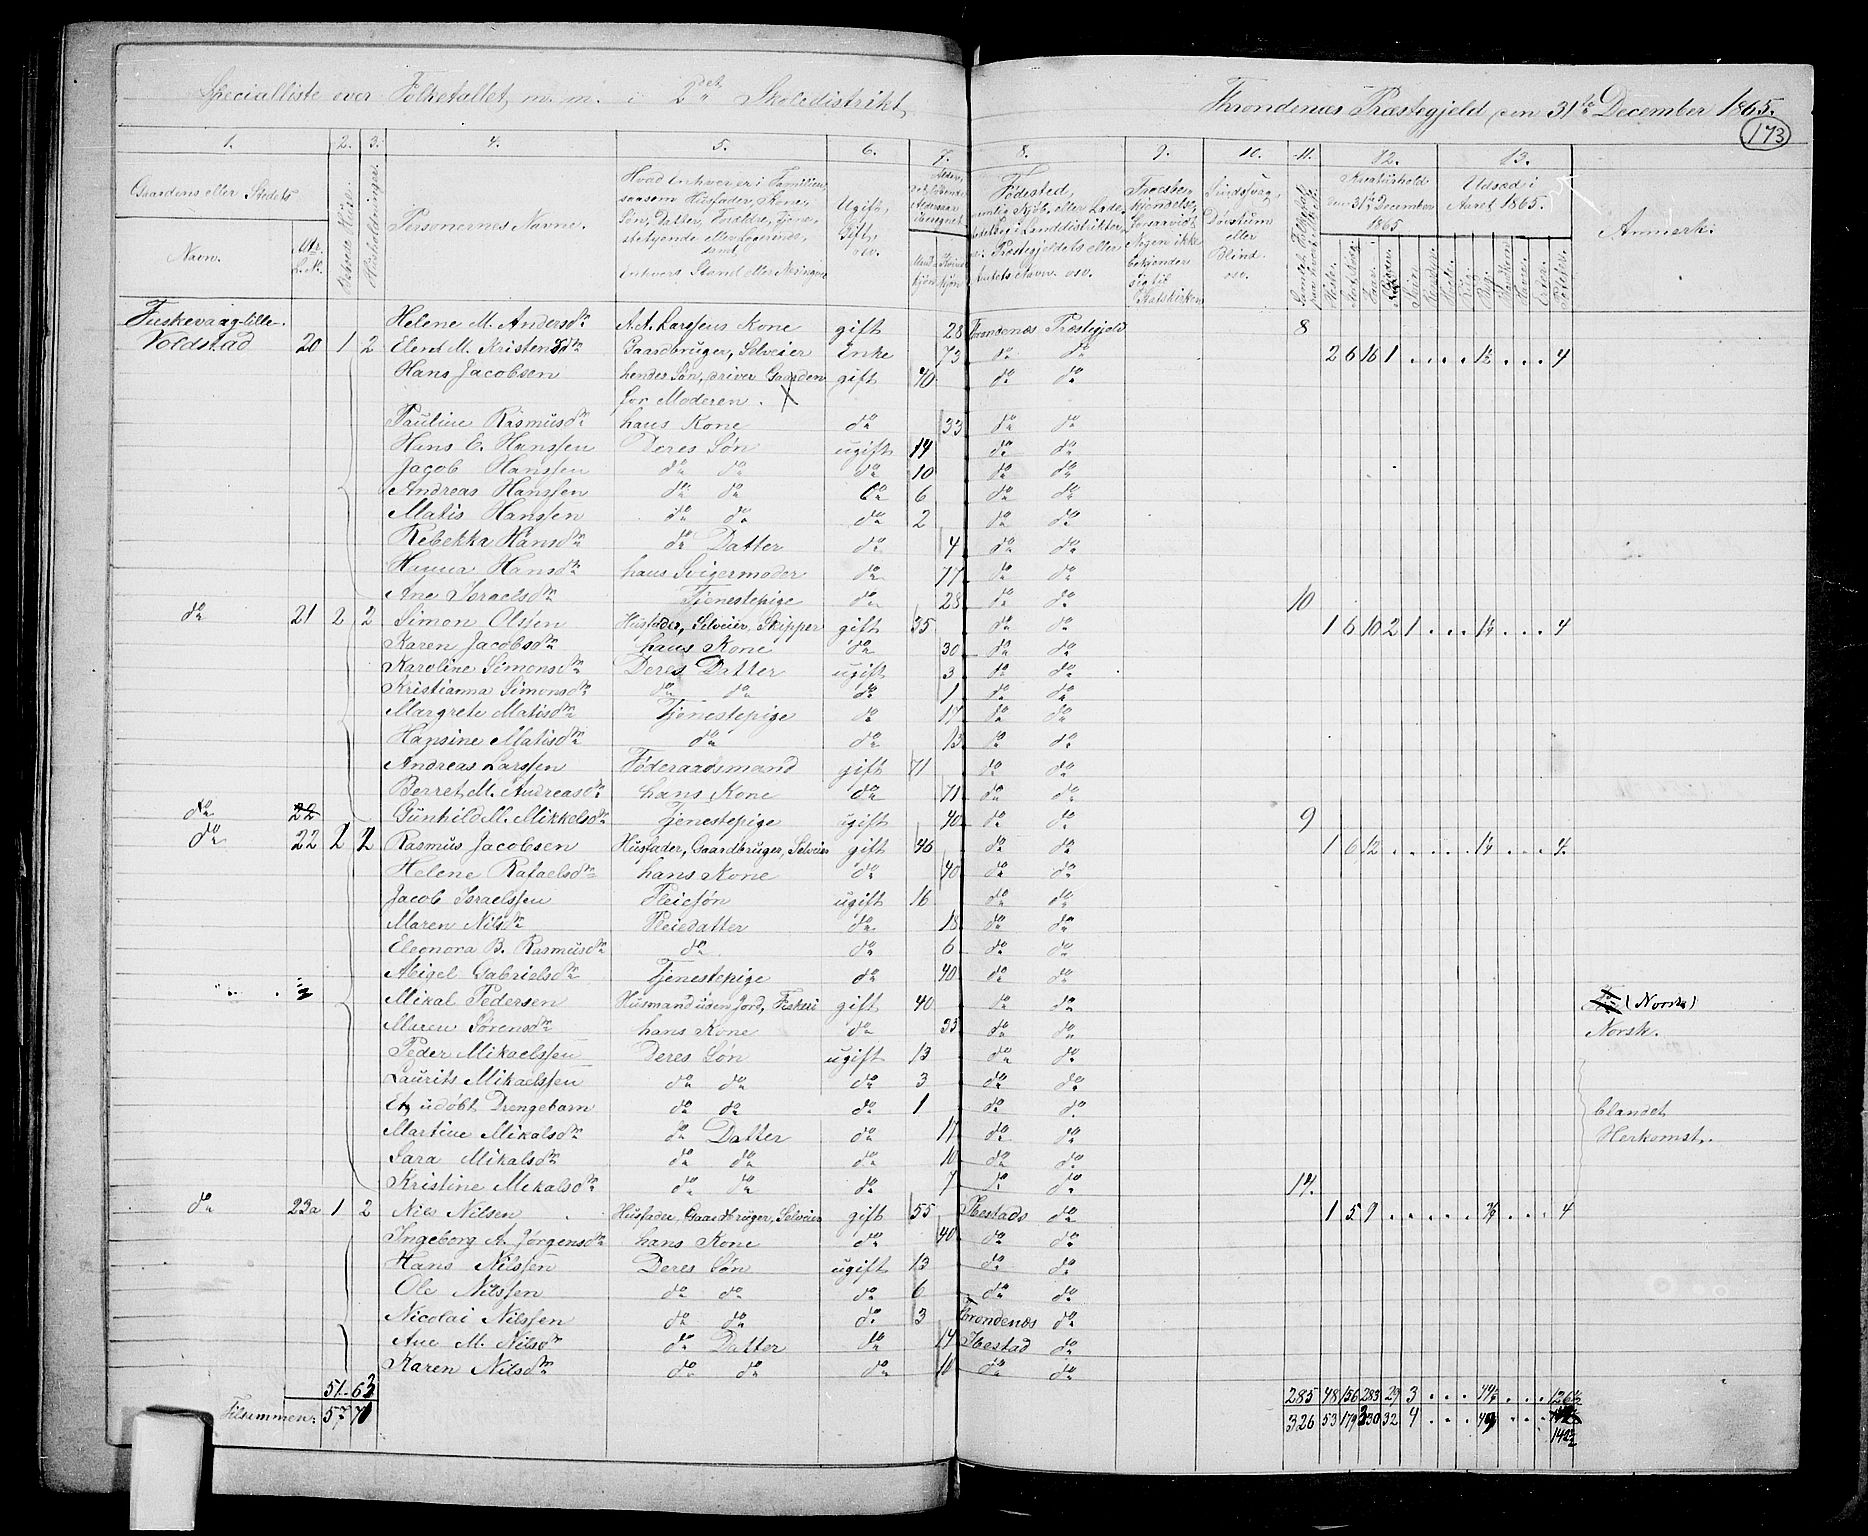 Specialliste over Folketallet m. m. i 2det Skoledistrikt, Throndenæs Præstegjeld den 31te December 1865.
173
1. 2. 3. 4. 5. 6. 7. 8. 9. 10. 11. 12. 13.
Gaardens eller Stedets
Navn.
Mtr. L.N.
Beboede Huse.
Huusholdninger.
Personernes Navne.
Hvad Enhver er i Familien, saasom Husfader, Kone, Søn, Datter, Forældre, Tjenestetyende eller Logerende, samt Enhvers Stand eller Næringsvei
Ugift, Gift, osv.
Mandkjøn Kvindekjøn
Fødested,
Præstegjeldets eller Sognets Navn osv.
Troesbekjendelse, forsaavidt Nogen ikke bekjender sig til Statskirken
Sindssvag, Døvstum eller Blind osv.
Kreaturhold den 31te December 1865
Udsæd i Aaret 1865.
Anmerk:
Fuskevaag-lille. Helene M. Andersdr A. A. Larssens Kone gift 28 Trondenæs Præstegjeld 8
Voldstad 20 1 2 Elen M. Kristensdr Gaardbruger, Selveier Enke 73 do do 2 6 16 1 . . . . 1½ . . . 4
Hans Jacobsen hendes Søn, driver Gaarden gift 40 do do
for Moderen.
Pauline Rasmusdr hans Kone do 33 do do
Hans E. Hanssen Deres Søn ugift 14 do do
Jacob Hanssen do do do 10 do do
Andreas Hanssen do do do 6 do do
Matis Hanssen do do do 2 do do
Rebekka Hansdr do Datter do 4 do do
Hansdr hans Svigermoder do 77 do do
Ane Israelsdr Tjenestepige do 28 do do 10
do 21 2 2 Simon Olsen Husfader, Selveier, Skipper gift 35 do do 1 6 10 2 1 . . . 1¼ . . . 4
Karen Jacobsdr hans Kone do 30 do do
Karoline Simonsdr Deres Datter ugift 3 do do
Kristianna Simonsdr do do do 1 do do
Margrete Matisdr Tjenestepige do 17 do do
Hansine Matisdr do do 13 do do
Andreas Larssen Føderaadsmand gift 71 do do
Berret M. Andreasdr hans Kone do 71 do do
do 22 Gunhild M. Mikkelsdr Tjenestepige ugift 40 do do 9
do 22 2 2 Rasmus Jacobsen Husfader, Gaardbruger, Selveier gift 46 do do 1 6 12 . . . . . 1¼ . . . 4
Helene Rafaelsdr hans Kone do 40 do do
Jacob Israelssen Pleiesøn ugift 16 do do
Maren Nilsdr Pleiedatter do 18 do do
Eleonora B. Rasmusdr do do 6 do do
Abigel Gabrielsdr Tjenestepige do 40 do do
Mikal Pedersen Husmand uden Jord, Fiskeri gift 40 do do (Norsk)
Maren Sørensdr hans Kone do 35 do do Norsk.
Peder Mikaelssen Deres Søn ugift 13 do do
Laurits Mikaelssen do do do 3 do do
Et udøbt Drengebarn do do do 1 do do Blandet
Martine Mikalsdr do Datter do 17 do do Herkomst.
Sara Mikalsdr do do do 10 do do
Kristine Mikalsdr do do do 7 do do 14.
do 23a 1 2 Nils Nilsen Husfader, Gaardbruger, Selveier gift 55 Ibestads do 1 5 9 . . . . . ¾ . . . 4
Ingeborg A. Jørgensdr hans Kone do 40 do do
Hans Nilssen Deres Søn ugift 13 do do
Ole Nilssen do do do 6 do do
Nicolai Nilssen do do do 3 Trondenæs do
Ane M. Nilsdr do Datter do 14 Ibestad do
Karen Nilsdr do do do 10 do do
51 63 285 48 156 283 29 3 . . . 44½ . . . 126½
Tilsammen: 57 71 326 53 179 330 32 4 . . . 49 . . .
142½